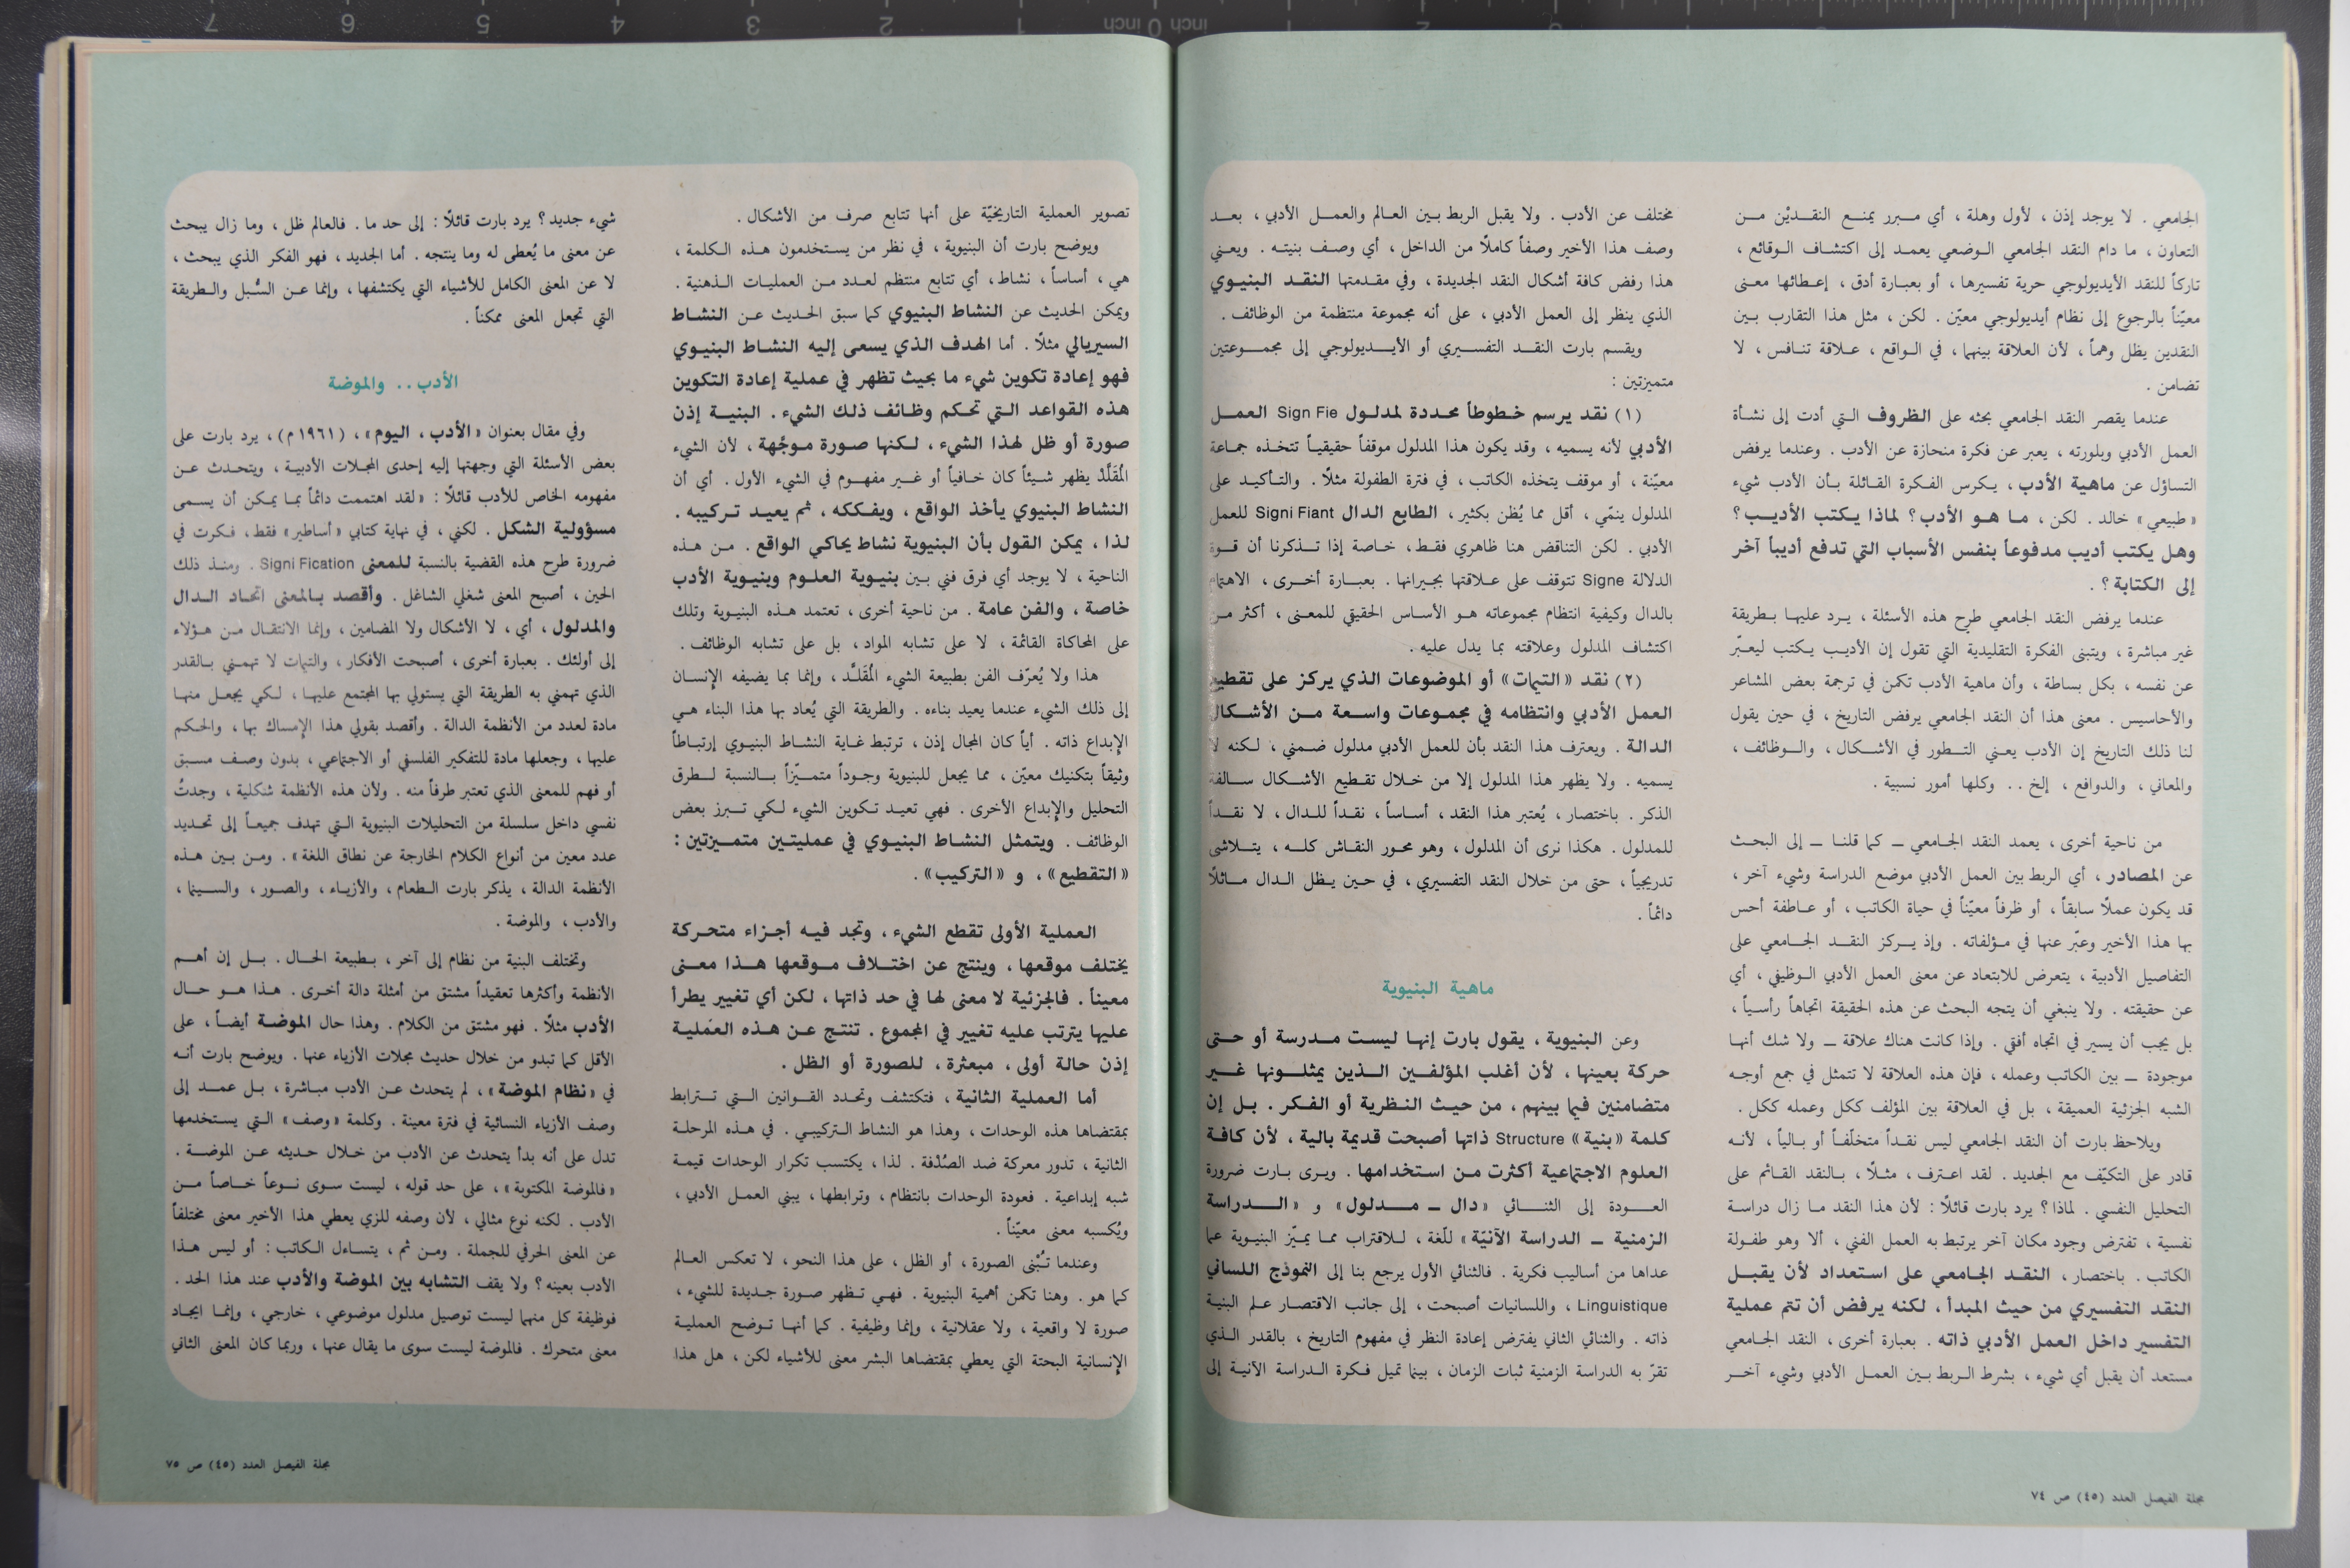 الجامعي . لا يوجد إذن ، لأول وهلة ، أي مبرر يمنع النقديْن من
التعاون ، ما دام النقد الجامعي الوضعي يعمد إلى اكتشاف الوقائع ،
تاركاً للنقد الأيديولوجي حرية تفسيرها ، أو بعبارة أدق ، إعطائها معنى
معيّناً بالرجوع إلى نظام أيديولوجي معيّن . لكن ، مثل هذا التقارب بين
النقدين يظل وهماً ، لأن العلاقة بينهما ، في الواقع ، علاقة تنافس ، لا
تضامن .
عندما يقصر النقد الجامعي بحثه على الظروف التي أدت إلى نشأة
العمل الأدبي وبلورته ، يعبر عن فكرة منحازة عن الأدب . وعندما يرفض
التساؤل عن ماهية الأدب ، يكرس الفكرة القائلة بأن الأدب شيء
« طبيعي » خالد . لكن ، ما هو الأدب ؟ لماذا يكتب الأديب ؟
وهل يكتب أديب مدفوعاً بنفس الأسباب التي تدفع أديباً آخر
إلى الكتابة ؟ .
عندما يرفض النقد الجامعي طرح هذه الأسئلة ، يرد عليها بطريقة
غير مباشرة ، ويتبنى الفكرة التقليدية التي تقول إن الأديب يكتب ليعبّر
عن نفسه ، بكل بساطة ، وأن ماهية الأدب تكمن في ترجمة بعض المشاعر
والأحاسيس . معنى هذا أن النقد الجامعي يرفض التاريخ ، في حين يقول
لنا ذلك التاريخ إن الأدب يعني التطور في الأشكال ، والوظائف ،
والمعاني ، والدوافع ، إلخ .. وكلها أمور نسبية .
من ناحية أخرى ، يعمد النقد الجامعي ــ كما قلنا ــ إلى البحث
عن المصادر ، أي الربط بين العمل الأدبي موضع الدراسة وشيء آخر ،
قد يكون عملًا سابقاً ، أو ظرفاً معيّناً في حياة الكاتب ، أو عاطفة أحس
بها هذا الأخير وعبّر عنها في مؤلفاته . وإذ يركز النقد الجامعي على
التفاصيل الأدبية ، يتعرض للابتعاد عن معنى العمل الأدبي الوظيفي ، أي
عن حقيقته . ولا ينبغي أن يتجه البحث عن هذه الحقيقة اتجاهاً رأسياً ،
بل يجب أن يسير في اتجاه أفقي . وإذا كانت هناك علاقة ــ ولا شك أنها
موجودة ــ بين الكاتب وعمله ، فإن هذه العلاقة لا تتمثل في جمع أوجه
الشبه الجزئية العميقة ، بل في العلاقة بين المؤلف ككل وعمله ككل .
ويلاحظ بارت أن النقد الجامعي ليس نقداً متخلّفاً أو بالياً ، لأنه
قادر على التكيّف مع الجديد . لقد اعترف ، مثلًا ، بالنقد القائم على
التحليل النفسي . لماذا ؟ يرد بارت قائلًا : لأن هذا النقد ما زال دراسة
نفسية ، تفترض وجود مكان آخر يرتبط به العمل الفني ، ألا وهو طفولة
الكاتب . باختصار ، النقد الجامعي على استعداد لأن يقبل
النقد التفسيري من حيث المبدأ ، لكنه يرفض أن تتم عملية
التفسير داخل العمل الأدبي ذاته . بعبارة أخرى ، النقد الجامعي
مستعد أن يقبل أي شيء ، بشرط الربط بين العمل الأدبي وشيء آخر
مختلف عن الأدب . ولا يقبل الربط بين العالم والعمل الأدبي ، بعد
وصف هذا الأخير وصفاً كاملًا من الداخل ، أي وصف بنيته . ويعني
هذا رفض كافة أشكال النقد الجديدة ، وفي مقدمتها النقد البنيوي
الذي ينظر إلى العمل الأدبي ، على أنه مجموعة منتظمة من الوظائف .
ويقسم بارت النقد التفسيري أو الأيديولوجي إلى مجموعتين
متميزتين :
(١) نقد يرسم خطوطاً محددة لمدلول Sign Fie العمل
الأدبي لأنه يسميه ، وقد يكون هذا المدلول موقفاً حقيقياً تتخذه جماعة
معيّنة ، أو موقف يتخذه الكاتب ، في فترة الطفولة مثلًا . والتأكيد على
المدلول ينمّي ، أقل مما يُظن بكثير ، الطابع الدال Signi Fiant للعمل
الأدبي . لكن التناقض هنا ظاهري فقط ، خاصة إذا تذكرنا أن قوة
الدلالة Signe تتوقف على علاقتها بجيرانها . بعبارة أخرى ، الاهتمام
بالدال وكيفية انتظام مجموعاته هو الأساس الحقيقي للمعنى ، أكثر من
اكتشاف المدلول وعلاقته بما يدل عليه .
(٢) نقد «التيمات» أو الموضوعات الذي يركز على تقطيع
العمل الأدبي وانتظامه في مجموعات واسعة من الأشكال
الدالة . ويعترف هذا النقد بأن للعمل الأدبي مدلول ضمني ، لكنه لا
يسميه . ولا يظهر هذا المدلول إلا من خلال تقطيع الأشكال سالفة
الذكر . باختصار ، يُعتبر هذا النقد ، أساساً ، نقداً للدال ، لا نقداً
للمدلول . هكذا نرى أن المدلول ، وهو محور النقاش كله ، يتلاشى
تدريجياً ، حتى من خلال النقد التفسيري ، في حين يظل الدال ماثلًا
دائماً .
ماهية البنيوية
وعن البنيوية ، يقول بارت إنها ليست مدرسة أو حتى
حركة بعينها ، لأن أغلب المؤلفين الذين يمثلونها غير
متضامنين فيما بينهم ، من حيث النظرية أو الفكر . بل إن
كلمة « بنية » Structure ذاتها أصبحت قديمة بالية ، لأن كافة
العلوم الاجتماعية أكثرت من استخدامها . ويرى بارت ضرورة
العودة إلى الثنائي « دال ــ مدلول » و « الدراسة
الزمنية ــ الدراسة الآنيّة » للّغة ، للاقتراب مما يميّز البنيوية عما
عداها من أساليب فكرية . فالثنائي الأول يرجع بنا إلى النموذج اللساني
Linguistique ، واللسانيات أصبحت ، إلى جانب الاقتصار علم البنية
ذاته . والثنائي الثاني يفترض إعادة النظر في مفهوم التاريخ ، بالقدر الذي
تقرّ به الدراسة الزمنية ثبات الزمان ، بينما تميل فكرة الدراسة الآنية إلى
مجلة الفيصل العدد (٤٥) ص ٧٤
تصوير العملية التاريخيّة على أنها تتابع صرف من الأشكال .
ويوضح بارت أن البنيوية ، في نظر من يستخدمون هذه الكلمة ،
هي ، أساساً ، نشاط ، أي تتابع منتظم لعدد من العمليات الذهنية .
ويمكن الحديث عن النشاط البنيوي كما سبق الحديث عن النشاط
السيريالي مثلًا . أما الهدف الذي يسعى إليه النشاط البنيوي
فهو إعادة تكوين شيء ما بحيث تظهر في عملية إعادة التكوين
هذه القواعد التي تحكم وظائف ذلك الشيء . البنية إذن
صورة أو ظل لهذا الشيء ، لكنها صورة موجّهة ، لأن الشيء
المُقَلَّدْ يظهر شيئاً كان خافياً أو غير مفهوم في الشيء الأول . أي أن
النشاط البنيوي يأخذ الواقع ، ويفككه ، ثم يعيد تركيبه .
لذا ، يمكن القول بأن البنيوية نشاط يحاكي الواقع . من هذه
الناحية ، لا يوجد أي فرق فني بين بنيوية العلوم وبنيوية الأدب
خاصة ، والفن عامة . من ناحية أخرى ، تعتمد هذه البنيوية وتلك
على المحاكاة القائمة ، لا على تشابه المواد ، بل على تشابه الوظائف .
هذا ولا يُعرّف الفن بطبيعة الشيء المُقَلَّد ، وإنما بما يضيفه الإنسان
إلى ذلك الشيء عندما يعيد بناءه . والطريقة التي يُعاد بها هذا البناء هي
الإبداع ذاته . أياً كان المجال إذن ، ترتبط غاية النشاط البنيوي إرتباطاً
وثيقاً بتكنيك معيّن ، مما يجعل للبنيوية وجوداً متميّزاً بالنسبة لطرق
التحليل والإبداع الأخرى . فهي تعيد تكوين الشيء لكي تبرز بعض
الوظائف . ويتمثل النشاط البنيوي في عمليتين متميزتين :
« التقطيع » ، و « التركيب » .
العملية الأولى تقطع الشيء ، وتجد فيه أجزاء متحركة
يختلف موقعها ، وينتج عن اختلاف موقعها هذا معنى
معيناً . فالجزئية لا معنى لها في حد ذاتها ، لكن أي تغيير يطرأ
عليها يترتب عليه تغيير في المجموع . تنتج عن هذه العملية
إذن حالة أولى ، مبعثرة ، للصورة أو الظل .
أما العملية الثانية ، فتكتشف وتحدد القوانين التي تترابط
بمقتضاها هذه الوحدات ، وهذا هو النشاط التركيبي . في هذه المرحلة
الثانية ، تدور معركة ضد الصُدْفة . لذا ، يكتسب تكرار الوحدات قيمة
شبه إبداعية . فعودة الوحدات بانتظام ، وترابطها ، يبني العمل الأدبي ،
ويُكسبه معنى معيّناً .
وعندما تُبْنى الصورة ، أو الظل ، على هذا النحو ، لا تعكس العالم
كما هو . وهنا تكمن أهمية البنيوية . فهي تظهر صورة جديدة للشيء ،
صورة لا واقعية ، ولا عقلانية ، وإنما وظيفية . كما أنها توضح العملية
الإنسانية البحتة التي يعطي بمقتضاها البشر معنى للأشياء لكن ، هل هذا
شيء جديد ؟ يرد بارت قائلًا : إلى حد ما . فالعالم ظل ، وما زال يبحث
عن معنى ما يُعطى له وما ينتجه . أما الجديد ، فهو الفكر الذي يبحث ،
لا عن المعنى الكامل للأشياء التي يكتشفها ، وإنما عن السُبل والطريقة
التي تجعل المعنى ممكناً .
الأدب .. والموضة
وفي مقال بعنوان « الأدب ، اليوم » ، (١٩٦١ م) ، يرد بارت على
بعض الأسئلة التي وجهتها إليه إحدى المجلات الأدبية ، ويتحدث عن
مفهومه الخاص للأدب قائلًا : « لقد اهتممت دائماً بما يمكن أن يسمى
مسؤولية الشكل . لكني ، في نهاية كتابي « أساطير » فقط ، فكرت في
ضرورة طرح هذه القضية بالنسبة للمعنى Signi Fication . ومنذ ذلك
الحين ، أصبح المعنى شغلي الشاغل . وأقصد بالمعنى اتحاد الدال
والمدلول ، أي ، لا الأشكال ولا المضامين ، وإنما الانتقال من هؤلاء
إلى أولئك . بعبارة أخرى ، أصبحت الأفكار ، والتيمات لا تهمني بالقدر
الذي تهمني به الطريقة التي يستولي بها المجتمع عليها ، لكي يجعل منها
مادة لعدد من الأنظمة الدالة . وأقصد بقولي هذا الإمساك بها ، والحكم
عليها ، وجعلها مادة للتفكير الفلسفي أو الاجتماعي ، بدون وصف مسبق
أو فهم للمعنى الذي تعتبر طرفاً منه . ولأن هذه الأنظمة شكلية ، وجدتُ
نفسي داخل سلسلة من التحليلات البنيوية التي تهدف جميعاً إلى تحديد
عدد معين من أنواع الكلام الخارجة عن نطاق اللغة » . ومن بين هذه
الأنظمة الدالة ، يذكر بارت الطعام ، والأزياء ، والصور ، والسينما ،
والأدب ، والموضة .
وتختلف البنية من نظام إلى آخر ، بطبيعة الحال . بل إن أهم
الأنظمة وأكثرها تعقيداً مشتق من أمثلة دالة أخرى . هذا هو حال
الأدب مثلًا . فهو مشتق من الكلام . وهذا حال الموضة أيضاً ، على
الأقل كما تبدو من خلال حديث مجلات الأزياء عنها . ويوضح بارت أنه
في « نظام الموضة » ، لم يتحدث عن الأدب مباشرة ، بل عمد إلى
وصف الأزياء النسائية في فترة معينة . وكلمة « وصف » التي يستخدمها
تدل على أنه بدأ يتحدث عن الأدب من خلال حديثه عن الموضة .
« فالموضة المكتوبة » ، على حد قوله ، ليست سوى نوعاً خاصاً من
الأدب . لكنه نوع مثالي ، لأن وصفه للزي يعطي هذا الأخير معنى مختلفاً
عن المعنى الحرفي للجملة . ومن ثم ، يتساءل الكاتب : أو ليس هذا
الأدب بعينه ؟ ولا يقف التشابه بين الموضة والأدب عند هذا الحد .
فوظيفة كل منهما ليست توصيل مدلول موضوعي ، خارجي ، وإنما ايجاد
معنى متحرك . فالموضة ليست سوى ما يقال عنها ، وربما كان المعنى الثاني
مجلة الفيصل العدد (٤٥) ص ٧٥